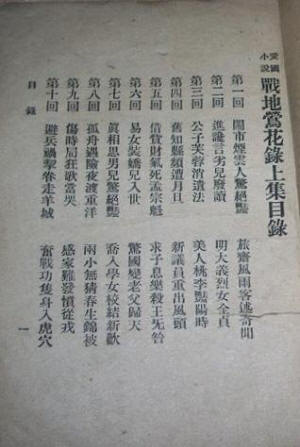 愛國小說 戰地鶯花錄上集目錄
第一回 鬧市煙雲人驚絕豔 旅齋風雨客述奇聞
第二回 進讒言劣兒廢讀 明大義烈女全貞
第三回 公子芙蓉消遣法 美人桃李豔陽時
第四回 舊知縣頻遭月旦 新議員重出風頭
第五回 借貲財氣死孟宗魁 求子息樂殺王旡咎
第六回 易女裝嬌兒入世 驚國變老父歸天
第七回 眞相思男兒驚絕豔 喬入學女校結新歡
第八回 孤舟遇險夜渡重洋 兩小無猜春生錦被
第九回 傷時局狂歌當哭 感家難發憤從戎
第十回 避兵禍挈眷走羊城 奮戰功隻身入虎穴
目錄
一